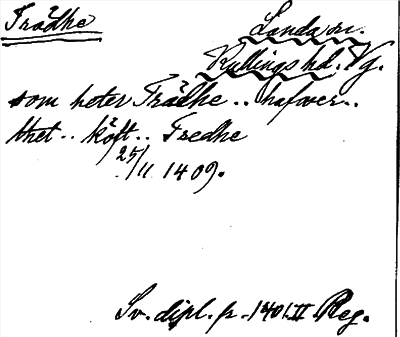 Trädhe Landa sn.
Kullings hd. Vg.
som heter Trädhe .. hafver ..
thet .. köft .. Tredhe
25/11 1409.
Sv. dipl. fr. 1401 II Reg.